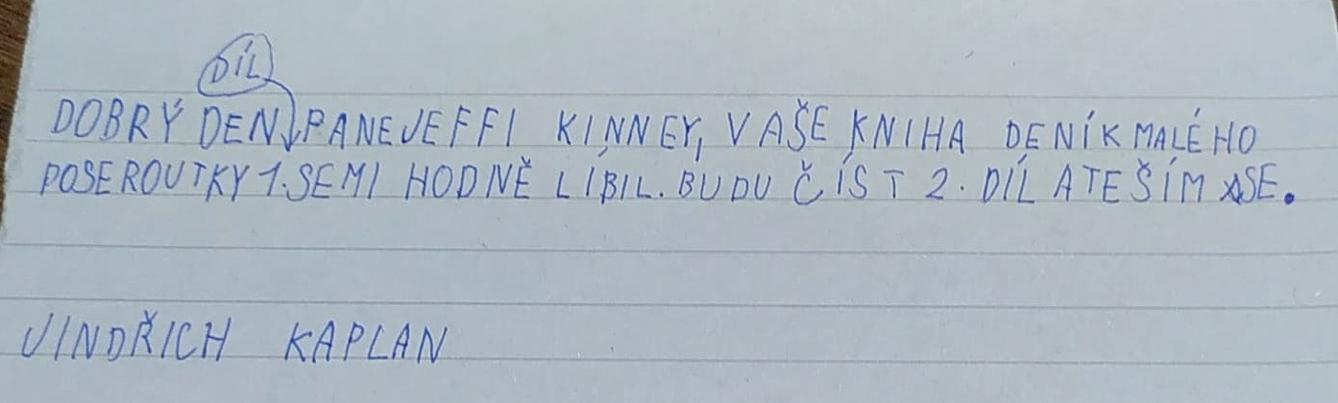 DÍL
DOBRÝ DEN PANE JEFFI KINNEY, VAŠE KNIHA DENÍK MALÉHO
POSEROUTKY 1. SE MI HODNĚ LÍBIL. BUDU ČÍST 2. DÍL A TEŠÍM SE.
JINDŘICH KAPLAN